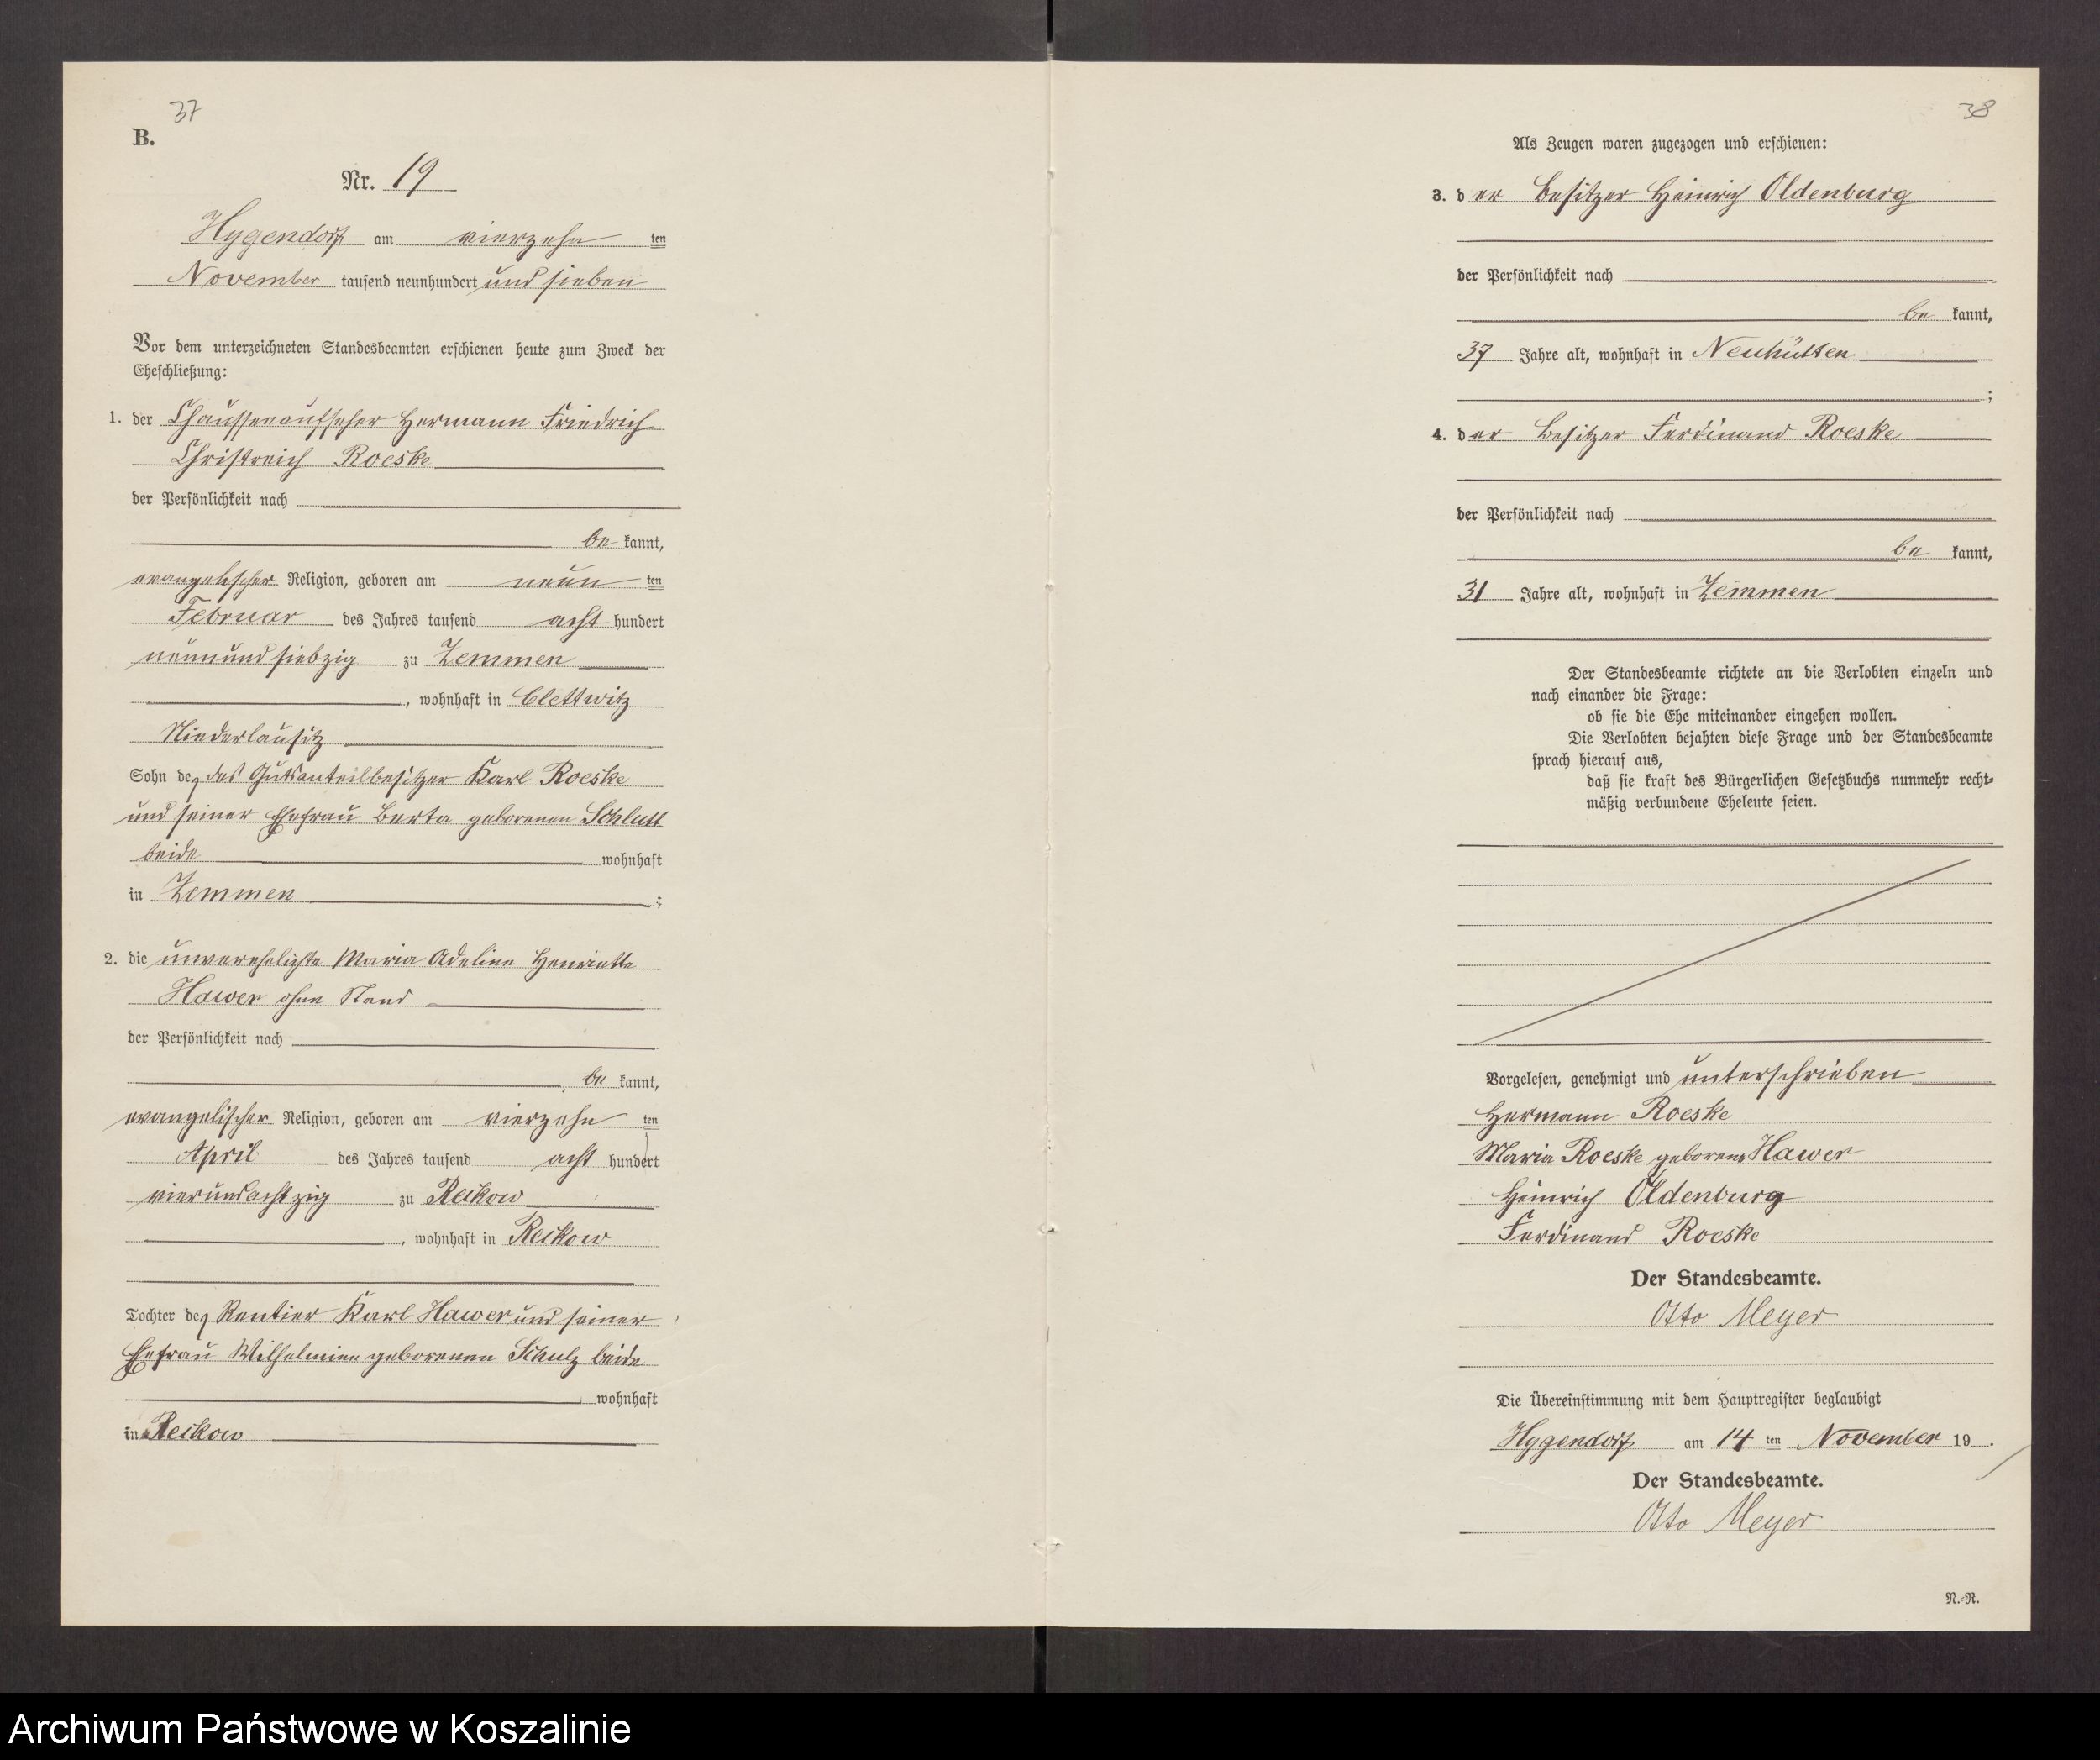 37
B.
Nr. 19
Hygendorf am vierzehn ten
November tausend neunhundert und sieben
Vor dem unterzeichneten Standesbeamten erschienen heute zum Zweck der
Eheschließung:
1. der Chausseeaufseher Hermann Friedrich
Christreich Roeske
der Persönlichkeit nach
be kannt,
evangelischer Religion, geboren am neun ten
Februar des Jahres tausend acht hundert
neunundsiebzig zu Zemmen
, wohnhaft in Clettwitz
Niederlausitz
Sohn des Gutsanteilbesitzer Karl Roeske
und seiner Ehefrau Berta geborenen Schlutt
beide wohnhaft
in Zemmen ;
2. die unverehelichte Maria Adeline Henriette
Hawer ohne Stand
der Persönlichkeit nach
be kannt,
evangelischer Religion, geboren am vierzehn ten
April des Jahres tausend acht hundert
vierundachtzig zu Reckow
, wohnhaft in Reckow
Tochter des Rentier Karl Hawer und seiner
Ehefrau Wilhelmine geborenen Schulz beide
wohnhaft
in Reckow
38
Als Zeugen waren zugezogen und erschienen:
3. der Besitzer Heinrich Oldenburg
der Persönlichkeit nach
be kannt,
37 Jahre alt, wohnhaft in Neuhütten
;
4. der Besitzer Ferdinand Roeske
der Persönlichkeit nach
be kannt,
31 Jahre alt, wohnhaft in Zemmen
Der Standesbeamte richtete an die Verlobten einzeln und
nach einander die Frage:
ob sie die Ehe miteinander eingehen wollen.
Die Verlobten bejahten diese Frage und der Standesbeamte
sprach hierauf aus,
daß sie kraft des Bürgerlichen Gesetzbuchs nunmehr recht-
mäßig verbundene Eheleute seien.
Vorgelesen, genehmigt und unterschrieben
Hermann Roeske
Maria Roeske geborene Hawer
Heinrich Oldenburg
Ferdinand Roeske
Der Standesbeamte.
Otto Meyer
Die Übereinstimmung mit dem Hauptregister beglaubigt
Hygendorf am 14 ten November 19 .
Der Standesbeamte.
Otto Meyer
N.-R.
Archiwum Państwowe w Koszalinie